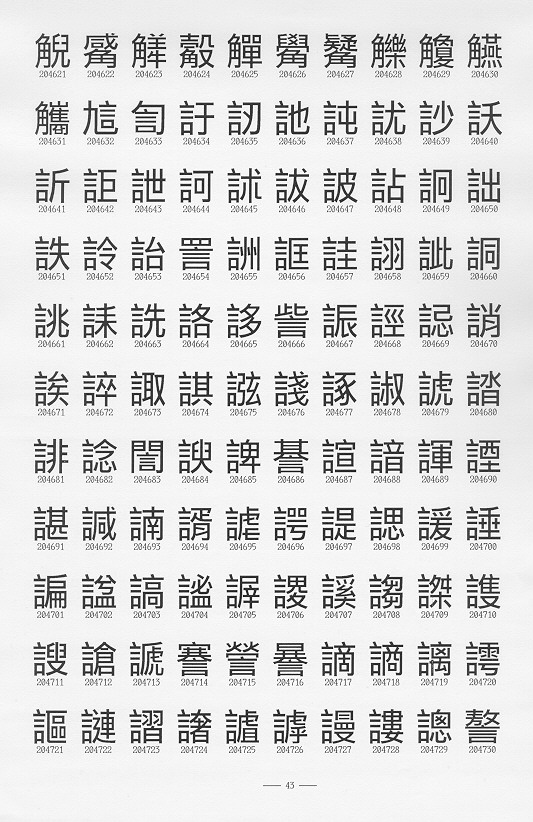 204621 204622 204623 204624 204625 204626 204627 204628 204629 204630
訄 訇 訏 訒 訑 訰 訧 訬 訞
204631 204632 204633 204634 204635 204636 204637 204638 204639 204640
訢 詎 詍 訶 訹 詙 詖 詀 詗 詘
204641 204642 204643 204644 204645 204646 204647 204648 204649 204650
詄 詅 詒 詈 詶 誆 詿 詡 諫 詷
204651 204652 204653 204654 204655 204656 204657 204658 204659 204660
誂 誄 詵 詻 誃 訾 誫 誙 誋 誚
204661 204662 204663 204664 204665 204666 204667 204668 204669 204670
誒 誶 諏 諆 誸 諓 諑 諔 諕 誻
204671 204672 204673 204674 204675 204676 204677 204678 204679 204680
誹 諗 誾 諛 諀 諅 諠 諳 諢 諲
204681 204682 204683 204684 204685 204686 204687 204688 204689 204690
諶 諴 諵 諝 謔 諤 諟 諰 諼 諈
204691 204692 204693 204694 204695 204696 204697 204698 204699 204700
諞 謚 謞 謐 謘 謖 謑 謅 謋 謢
204701 204702 204703 204704 204705 204706 204707 204708 204709 204710
謏 謒 謕 謇 謍 謈 謫 謫 謧 謣
204711 204712 204713 204714 204715 204716 204717 204718 204719 204720
謳 謰 謵 謯 謼 謾 謱 謥 謷
204721 204722 204723 204724 204725 204726 204727 204728 204729 204730
43